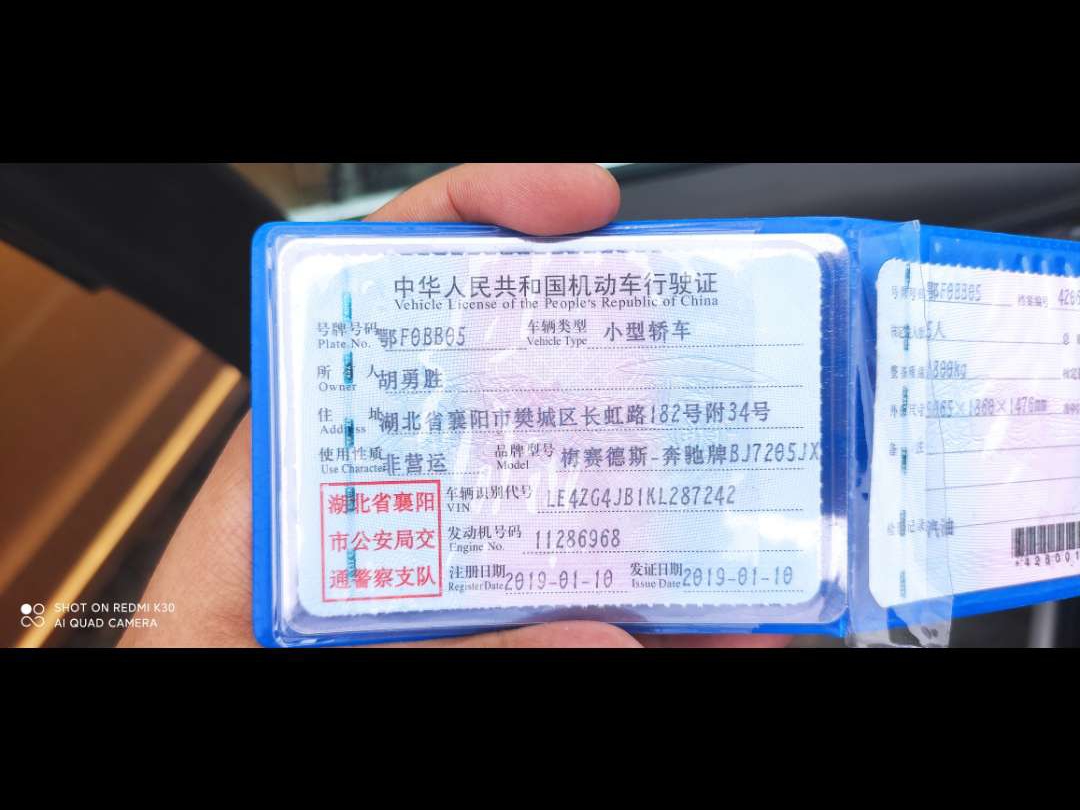 中华人民共和国机动车行驶证
Vehicle License of the People's Republic of China
号牌号码 鄂F0BB05 车辆类型 小型轿车
Plate No. Vehicle Type
所有人 胡勇胜
Owner
住址 湖北省襄阳市樊城区长虹路182号附34号
Address
使用性质 非营运 品牌型号 梅赛德斯-奔驰牌BJ7205JX
Use Character Model
湖北省襄阳
市公安局交
通警察支队
车辆识别代号 LE4ZG4JB1KL287242
VIN
发动机号码 11286968
Engine No.
注册日期 2019-01-10 发证日期 2019-01-10
Register Date Issue Date
号牌号码 鄂F0BB05 档案编号
5人
1476mm
汽油
SHOT ON REDMI K30
AI QUAD CAMERA